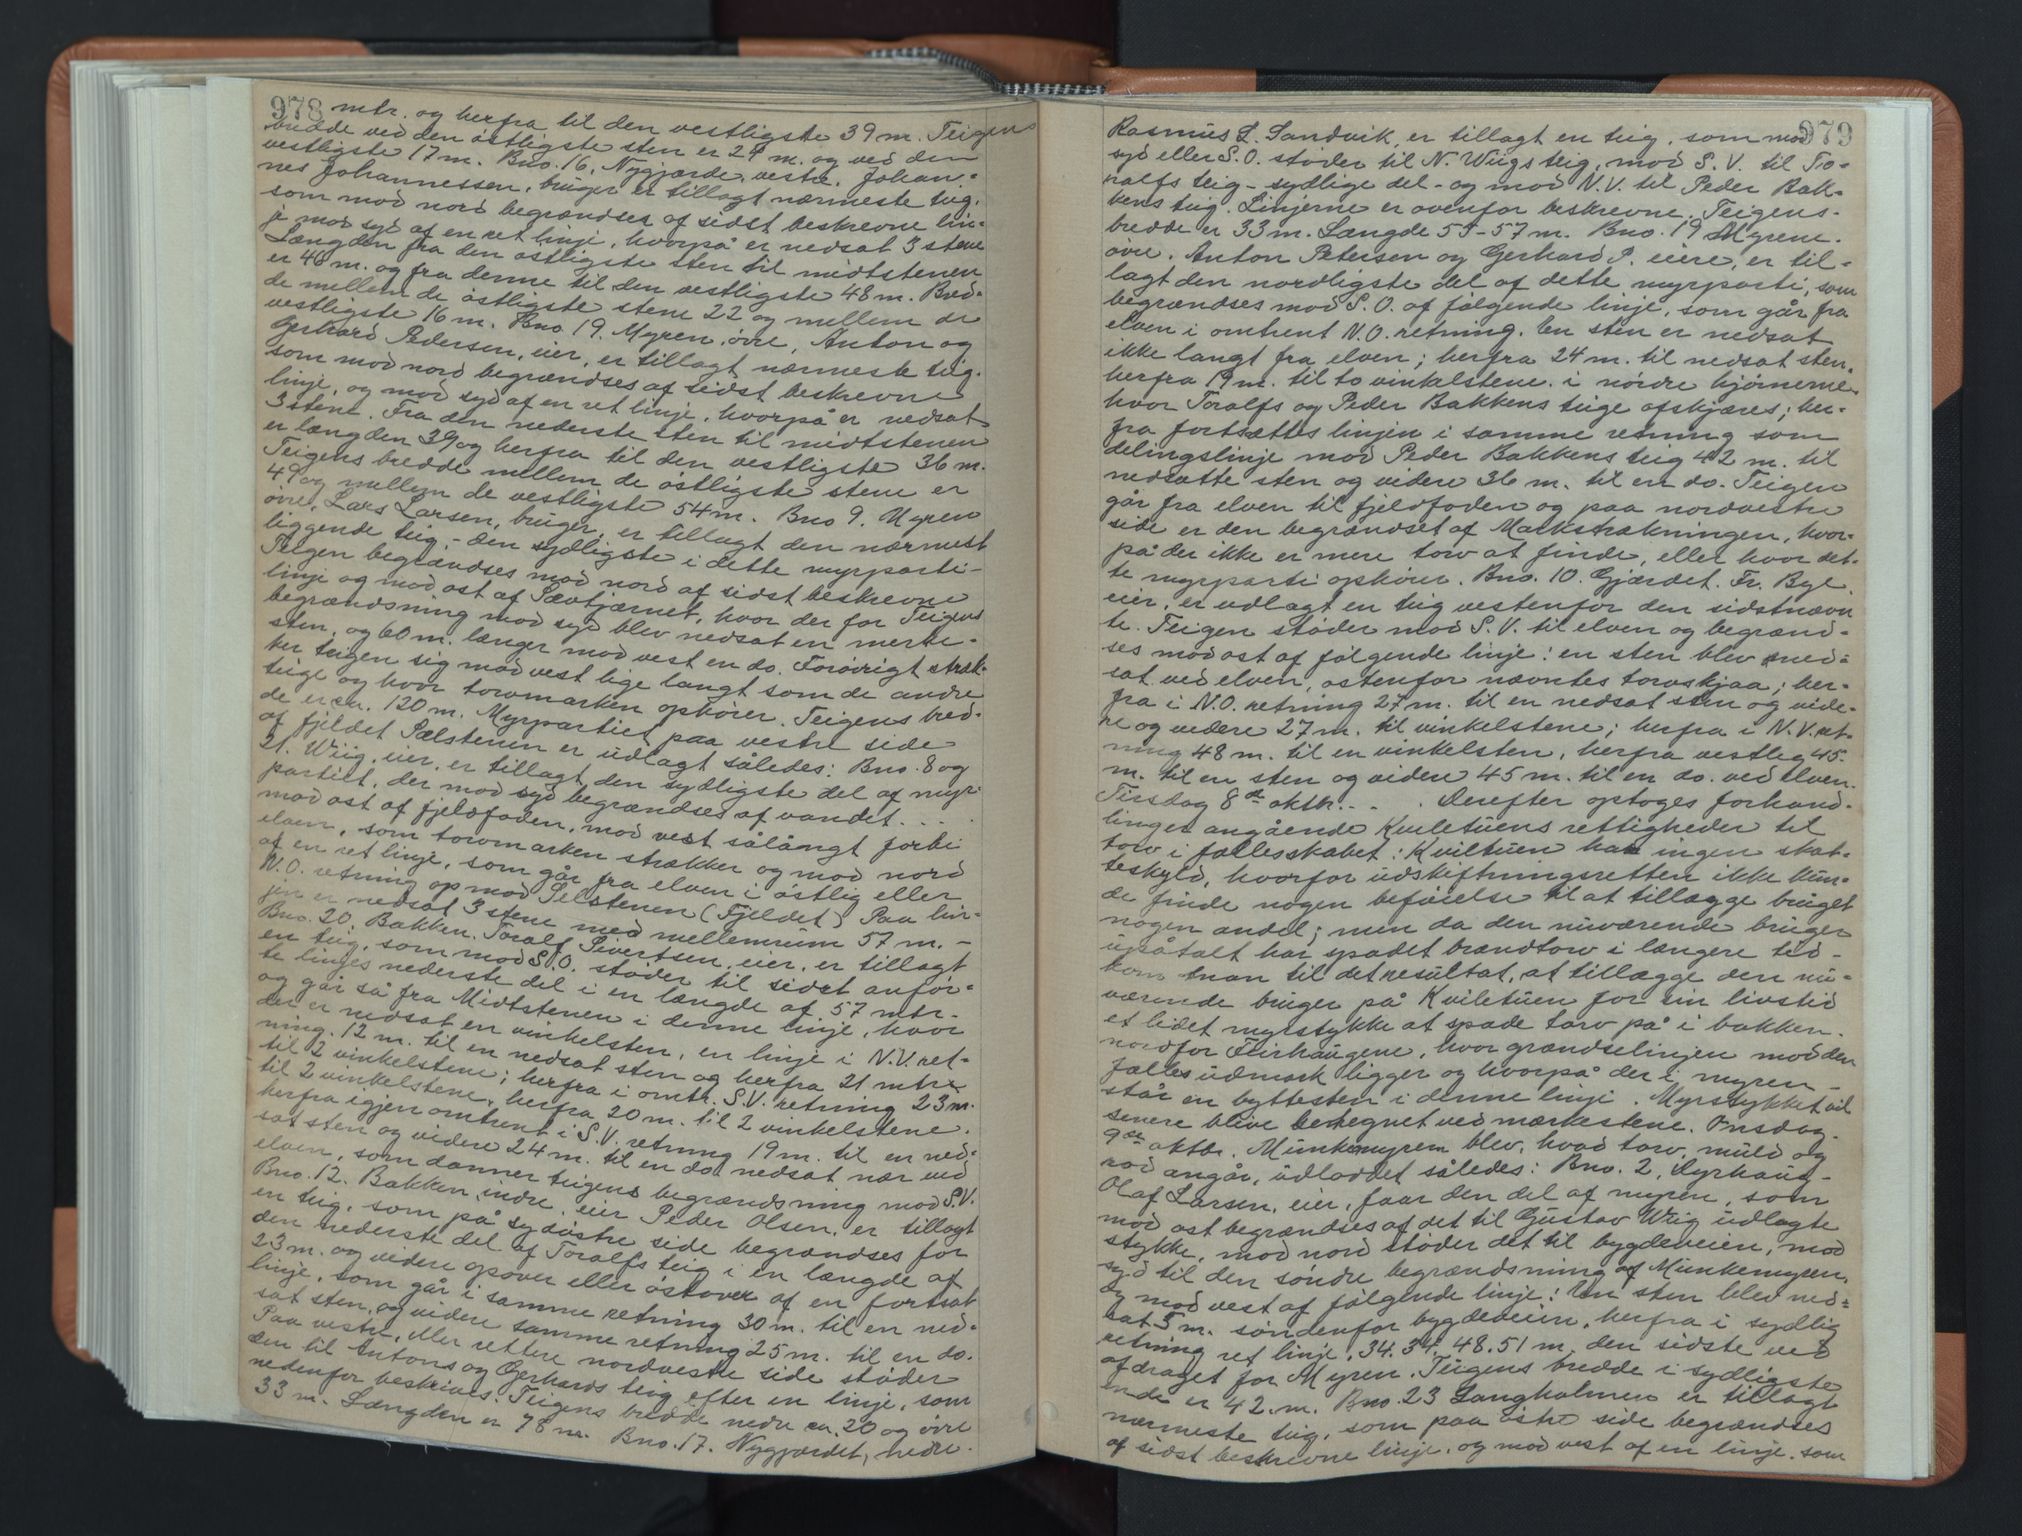 978
mtr. og herfra til den vestligste 39 m. Teigens
bredde ved den östligste sten er 24 m. og ved den
vestligste 17 m. Bno. 16, Nygjærde, vestre, Johan-
nes Johannessen, bruger er tillagt nærmeste teig,
som mod nord begrændses af sidst beskrevne lin-
je mod syd af en ret linje, hvorpå er nedsat 3 stene
Længden fra den østligste sten til midtstenen
er 46 m. og fra denne til den vestligste 48 m. Bred-
de mellem de östligste stene 22 og mellem de
vestligste 16 m. Bno. 19. Myren, övre, Anton og
Gerhard Pedersen, eier, er tillagt nærmeste teig,
som mod nord begrændses af sidst beskrevne
linje, og mod syd af en ret linje, hvorpå er nedsat
3 stene. Fra den nederste sten til midtstenen
er længden 39 og herfra til den vestligste 36 m.
Teigens bredde mellem de östligste stene er
49 og mellem de vestligste 54 m. Bno 9. Myren
övre, Lars Larsen, bruger, er tillagt den nærmest
liggende teig, - den sydligste i dette myrparti -
Teigen begrændses mod nord af sidst beskrevne
linje og mod ost af Sævtjærnet, hvor der for Teigens
begrændsning mod syd blev nedsat en merke-
sten, og 60 m. længer mod vest en do. Forövrigt stræk-
ker teigen sig mod vest lige langt som de andre
teige og hvor torvmarken ophörer. Teigens bred-
de er ca. 120 m. Myrpartiet paa vestre side
af fjeldet Sælstenen er udlagt således: Bno. 8 og
21. Wiig, eier, er tillagt den sydligste del af myr-
partiet, der mod syd begrændses af vandet . . . .
mod ost af fjeldfoden, mod vest sålångt forbi
elven, som torvmarken strækker og mod nord
af en ret linje, som går fra elven i östlig eller
N.O. retning op mod Selstenen (Fjeldet) Paa lin-
jen er nedsat 3 stene med mellemrum 57 m. -
Bno. 20. Bakken, Toralf Sivertsen, eier, er tillagt
en teig, som mod S.O. støder til sidst anför-
te linjes nederste del i en længde af 57 mtr.
og går så fra Midtstenen i denne linje, hvor
der er nedsat en vinkelsten, en linje i N.V. ret-
ning. 12 m. til en nedsat sten og herfra 21 mtr.
til 2 vinkelstene; herfra i omtr. S.V. retning 23 m.
til 2 vinkelstene, herfra 20 m. til 2 vinkelstene.
herfra igjen omtrent i S.V. retning 19 m. til en ned-
sat sten og videre 24 m. til en do. nedsat nær ved
elven, som danner teigens begrændsning mod S.V.
Bno. 12. Bakken, indre, eier Peder Olsen, er tillagt
en teig, som på sydöstre side begrændses for
den nederste del af Toralfs teig i en længde af
23 m. og videre opover eller östover af en fortsat
linje, som går i samme retning 30 m. til en ned-
sat sten, og videre samme retning 25 m. til en do.
Paa vestre, eller rettere nordvestre side støder
den til Antons og Gerhards teig efter en linje, som
nedenfor beskrives. Teigens bredde nedre ca. 20 og övre
33 m. Længden er 78 m. Bno. 17. Nygjærdet, nedre.
979
Rasmus L. Sandvik, er tillagt en teig, som mod
syd eller S.O. støder til N. Wiigs teig, mod S.V. til To-
ralfs teig - sydlige del - og mod N.V. til Peder Bak-
kens teig. Linjerne er ovenfor beskrevne. Teigens-
bredde er 33 m. Længde 55-57 m. Bno. 19 Myrene.
övre. Anton Petersen og Gerhard P. eiere, er til-
lagt den nordligste del af dette myrparti, som
begrændses mod S.O. af følgende linje, som går fra
elven i omtrent N.O. retning. En sten er nedsat
ikke langt fra elven; herfra 24 m. til nedsat sten,
herfra 19 m. til to vinkelstene. i nórdre hjörnerne
hvor Toralfs og Peder Bakkens teige afskjæres; her-
fra fortsættes linjen i samme retning som
delingslinje mod Peder Bakkens teig 42 m. til
nedsatte sten og videre 36 m. til en do. Teigen
går fra elven til fjeldfoden og paa nordvestre
side er den begrændset af Markstrækningen, hvor-
på der ikke er mere torv at finde, eller hvor det-
te myrparti ophörer. Bno. 10. Gjærdet. Fr. Bye.
eier, er udlagt en teig vestenfor den sidstnævn
te. Teigen støder mod S.V. til elven og begrænd-
ses mod ost af følgende linje: en sten blev ned-
sat ved elven, ostenfor nævntes torvskjaa; her-
fra i N.O. retning 27 m. til en nedsat sten og vide-
re og videre 27 m. til vinkelstene; herfra i N.V. ret-
ning 48 m. til en vinkelsten, herfra vestlig 45.
m. til en sten og videre 45 m. til en do. ved elven.
Tirsdag 8de oktb. - . . Derefter optoges forhand-
linger angående Kviletuens rettigheder til
torv i fællesskabet: Kviltuen har ingen skat-
teskyld, hvorfor udskiftningsretten ikke kun-
de finde nogen beføielse til at tillægge bruget
nogen andel; men da den nuværende bruger
upåtalt har spadet brændtorv i længere tid -
kom man til det resultat, at tillægge den nu-
værende bruger på Kviletuen for sin livstid
et lidet myrstykke at spade torv på i bakken.
nordfor Feirhaugene, hvor grændselinjen mod den
fælles udmark ligger og hvorpå der i myren -
står en byttesten i denne linje. Myrstykket vil
senere blive betegnet ved mærkestene. Onsdag.
9de oktbr. Munkemyren blev, hvad torv, muld og
rod angår, udloddet således: Bno. 2, Dyrhaug-
Olaf Larsen, eier, faar den del af myren, som
mod ost begrændses af det til Gustav Wiig udlagte
stykke, mod nord støder det til bygdeveien, mod
syd til den søndre begrændsning af Munkemyren,
og mod vest af følgende linje: En sten blev ned-
sat 5 m. söndenfor bygdeveien, herfra i sydlig
retning ret linje, 34. 34. 48. 51 m. den sidste ved
afdraget for Myren. Teigens bredde i sydligste
ende er 42. m. Bno. 23 Langholmen er tillagt
nærmeste teig, som paa östre side begrændses
af sidst beskrevne linje, og mod vest af en linje, som